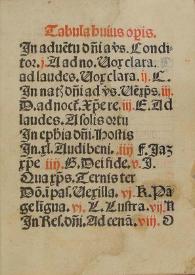 Tabula huius opis.
In aduẽtu dñi a vs. Condi-
tor. j. A ad no. Vox clara.
ad laudes. Vox clara. ij. C.
In natꝫ dñi ad vs. Ve
D. ad noct. Xp̃e re. iij. E. Ad
laudes. A solis ortu
In ephia dñi. Hostis
In .xl. Audi beni. iiij F. Jaꝫ
xp̃e iiij G. Dei fide. v. J.
Qua xp̃s. Ternis ter
Do. ĩ pal. Vexilla. vj K. Pã
ge ligua. vj L. Lustra. vij
In Res. dñi. Ad cenã. viij